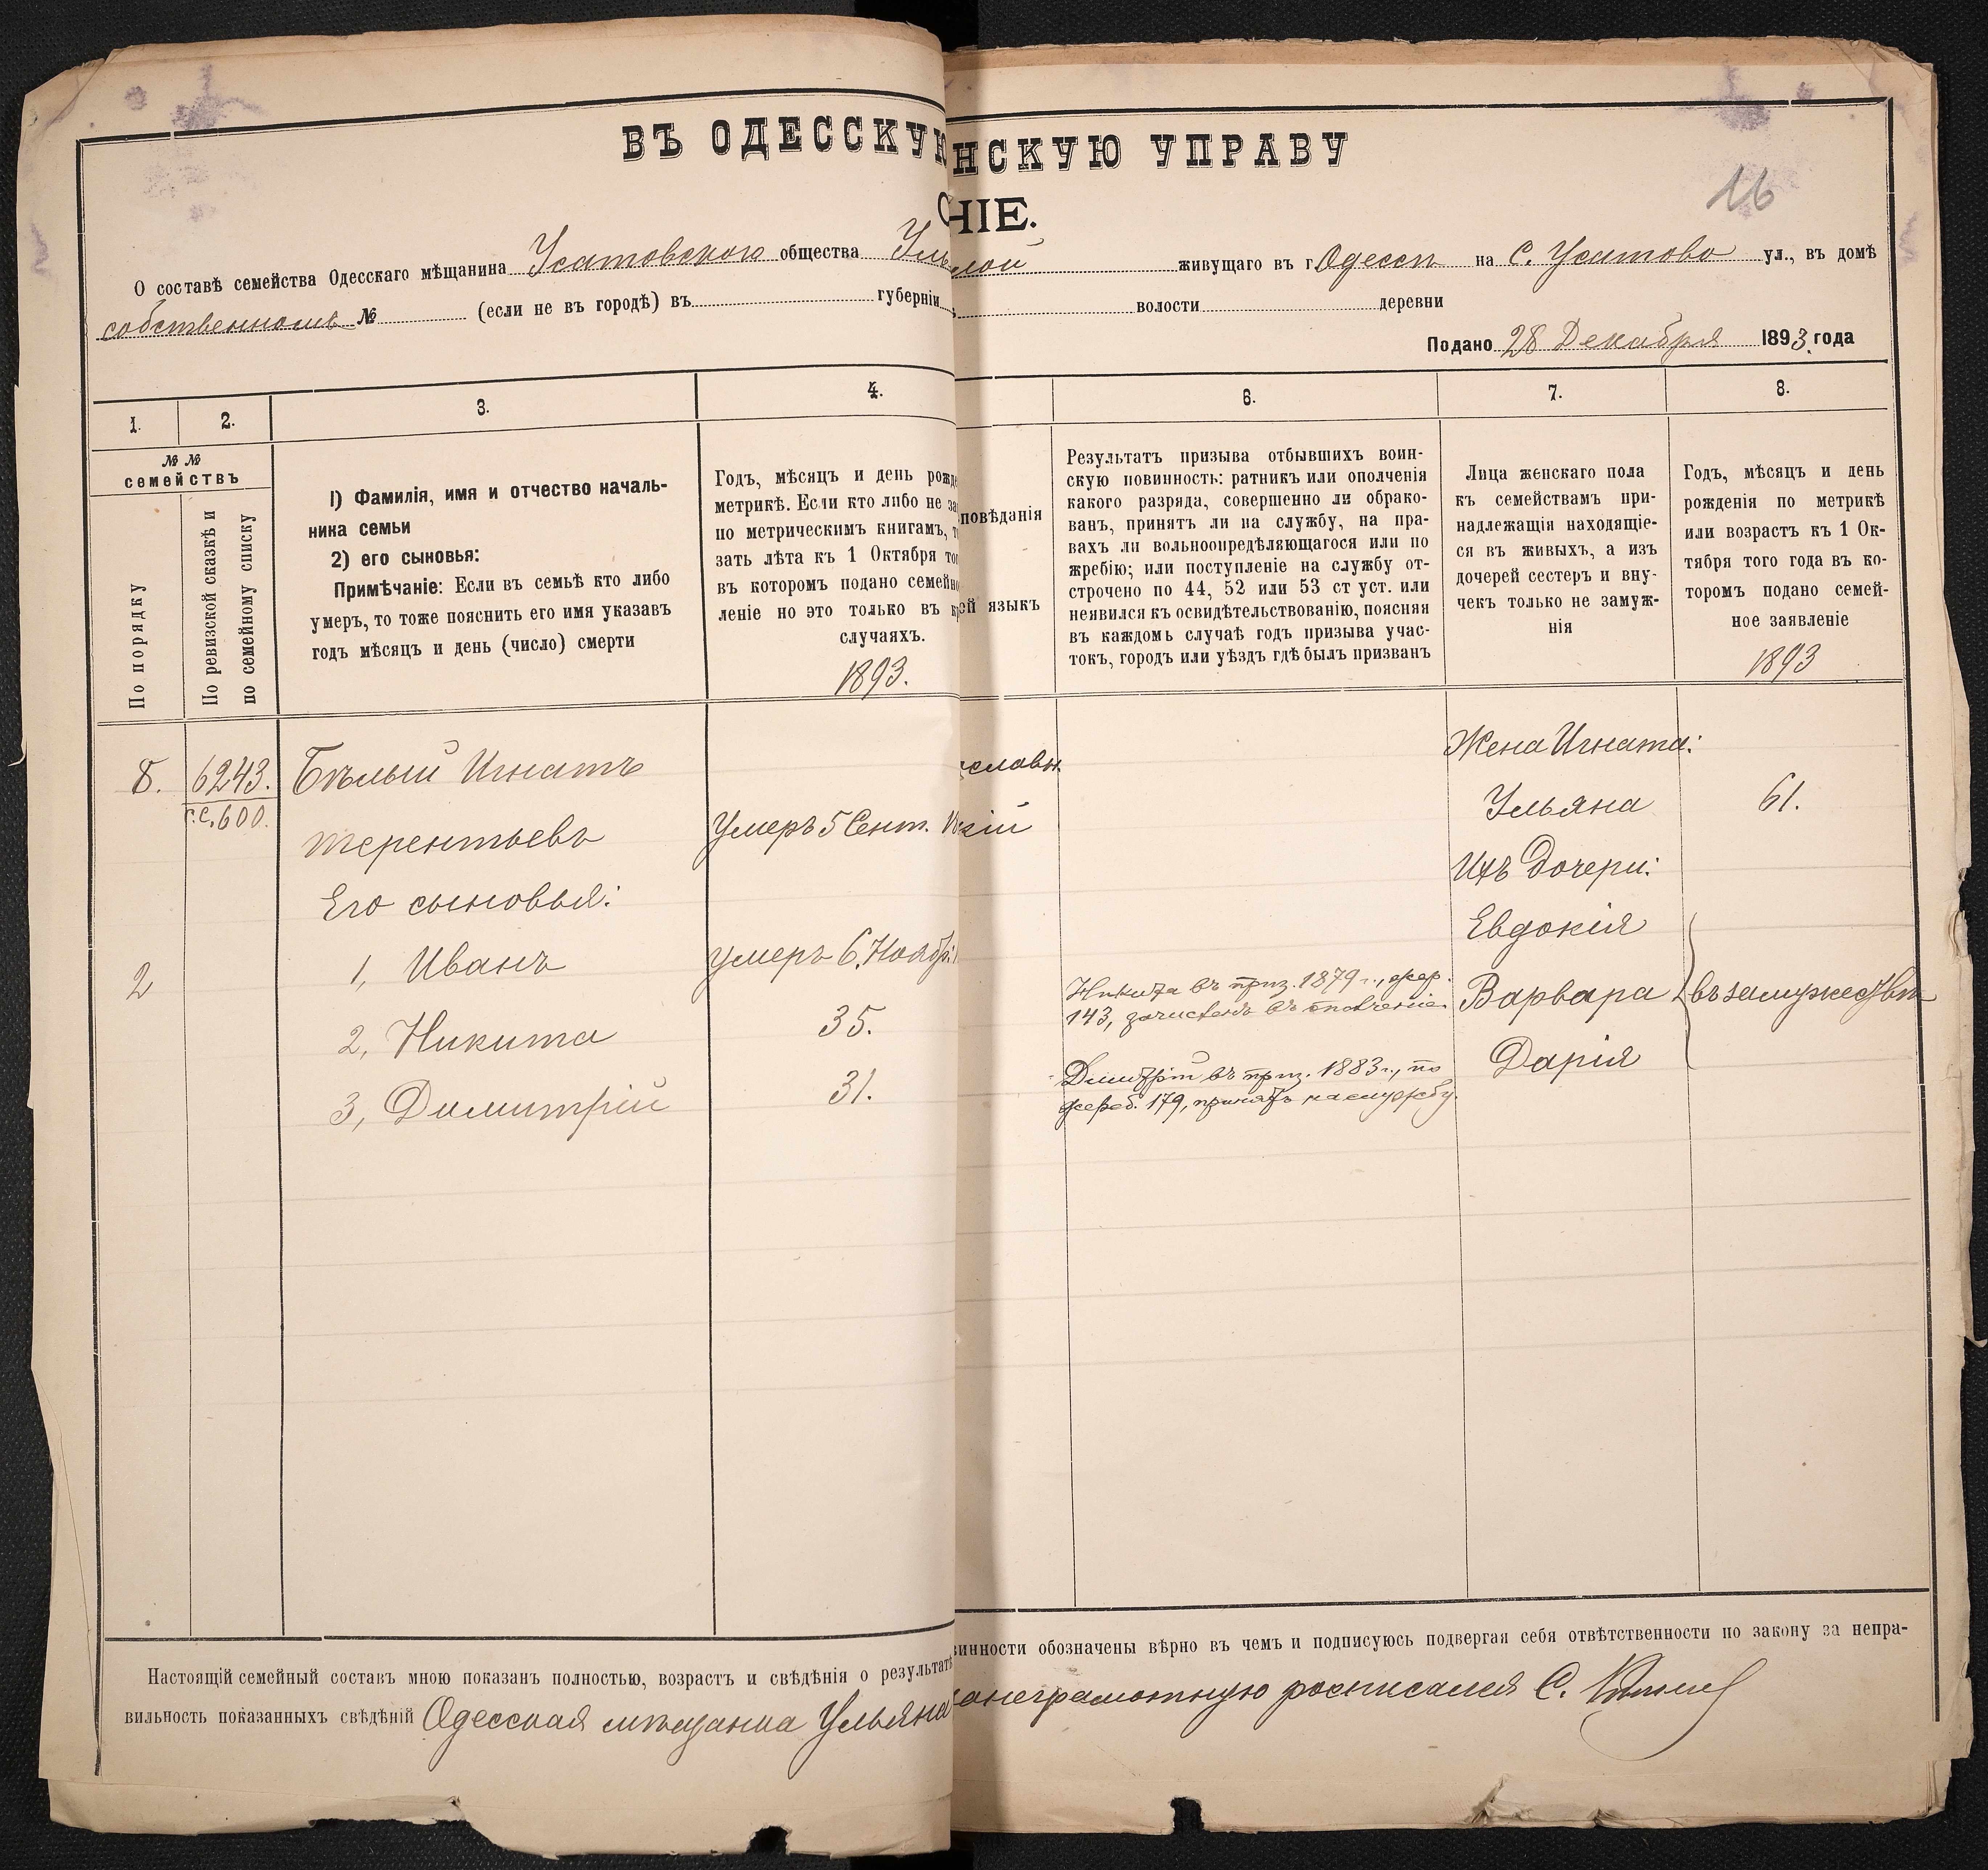 ВЪ ОДЕССКУЮ
НСКУЮ УПРАВУ
НІЕ.
16
О составѣ семейства Одесскаго мѣщанина Усатовского общества Улья
лой живущаго въ г. Одессѣ на С. Усатово ул., въ домѣ
собственномъ № (если не въ городѣ) въ губерніи
волости деревни
Подано 28 Декабря 1893 года
1.
2.
3.
4.
6.
7.
8.
№ №
семействъ
По порядку
По ревизской сказкѣ и
по семейному списку
1) Фамилія, имя и отчество началь-
ника семьи
2) его сыновья:
Примѣчаніе: Если въ семьѣ кто либо
умеръ, то тоже пояснить его имя указавъ
годъ мѣсяцъ и день (число) смерти
Годъ, мѣсяцъ и день рожде
метрикѣ. Если кто либо не за
по метрическимъ книгамъ, т
зать лѣта къ 1 Октября тог
въ которомъ подано семейно
леніе но это только въ кр
случаяхъ.
1893.
повѣданія
ей языкъ
Результатъ призыва отбывшихъ воин-
скую повинность: ратникъ или ополченія
какого разряда, совершенно ли обрако-
ванъ, принятъ ли на службу, на пра-
вахъ ли вольноопредѣляющагося или по
жребію; или поступленіе на службу от-
строчено по 44, 52 или 53 ст уст. или
неявился къ освидѣтельствованію, поясняя
въ каждомъ случаѣ годъ призыва учас-
токъ, городъ или уѣздъ гдѣ былъ призванъ
Лица женскаго пола
къ семействамъ при-
надлежащія находящіе-
ся въ живыхъ, а изъ
дочерей сестеръ и вну-
чекъ только не замуж-
нія
Годъ, мѣсяцъ и день
рожденія по метрикѣ
или возрастъ къ 1 Ок-
тября того года въ ко-
торомъ подано семей-
ное заявленіе
1893
8. 6243. Бѣлый Игнатъ
с.с. 600.
терентьевъ Умеръ 5 Сент.
Его сыновья:
1, Иванъ умеръ 6 Ноябр.
2
2, Никита 35.
3, Димитрій 31.
ославн.
кій
Никита въ приз. 1879 г., жер.
143, зачисленъ въ ополченіе.
Димитрій въ приз. 1883 г., по
жереб. 179, принятъ на службу.
Жена Игната:
Ульяна 61.
Ихъ дочери:
Евдокія
Варвара въ замужествѣ
Дарія
Настоящій семейный составъ мною показанъ полностью, возрастъ и свѣдѣнія о результатѣ
винности обозначены вѣрно въ чемъ и подписуюсь подвергая себя отвѣтственности по закону за непра-
вильность показанныхъ свѣдѣній Одесская мѣщанка Ульяна
занеграмотную росписался С.